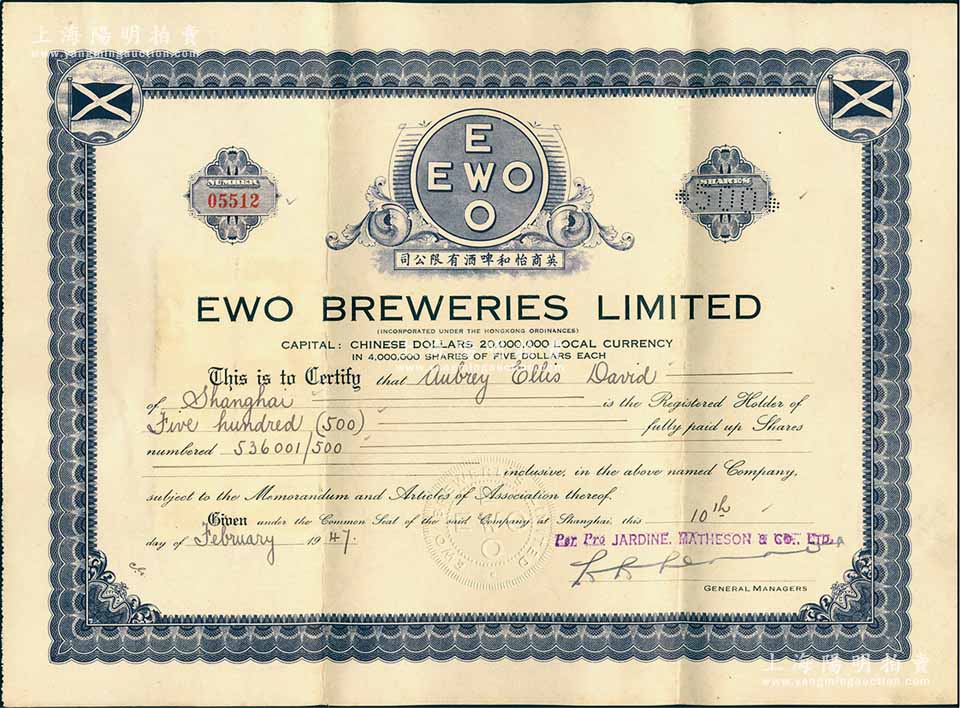 上海陽明拍賣
www.yangmingauction.com
E
EWO
O
NUMBER
05512
SHARES
500
司公限有酒啤和怡商英
EWO BREWERIES LIMITED
(INCORPORATED UNDER THE HONGKONG ORDINANCES)
CAPITAL: CHINESE DOLLARS 20,000,000 LOCAL CURRENCY
IN 4,000,000 SHARES OF FIVE DOLLARS EACH
This is to Certify that Aubrey Ellis David
of Shanghai is the Registered Holder of
Five hundred (500) fully paid up Shares
numbered 536001/500
inclusive, in the above named Company,
subject to the Memorandum and Articles of Association thereof.
Given under the Common Seal of the said Company, at Shanghai, this 10th
day of February 1947.
Per Pro JARDINE, MATHESON & CO., LTD.
GENERAL MANAGERS
EWO BREWERIES LIMITED
E
EWO
O
上海陽明拍賣
www.yangmingauction.com